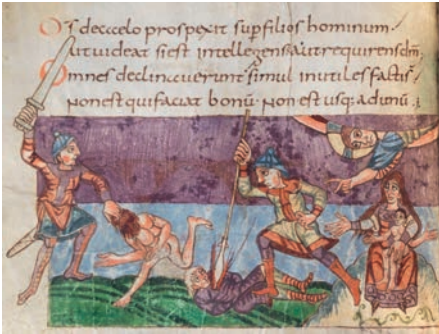 Dſ decaelo proſpexit ſup filioſ hominum·
ut uideat ſi eſt intellegenſ aut requirenſ dm̄·
Omneſ declinauerunt ſimul inutileſ facti ſt̄
Non eſt qui faciat bonū· Non eſt uſq; ad unū·